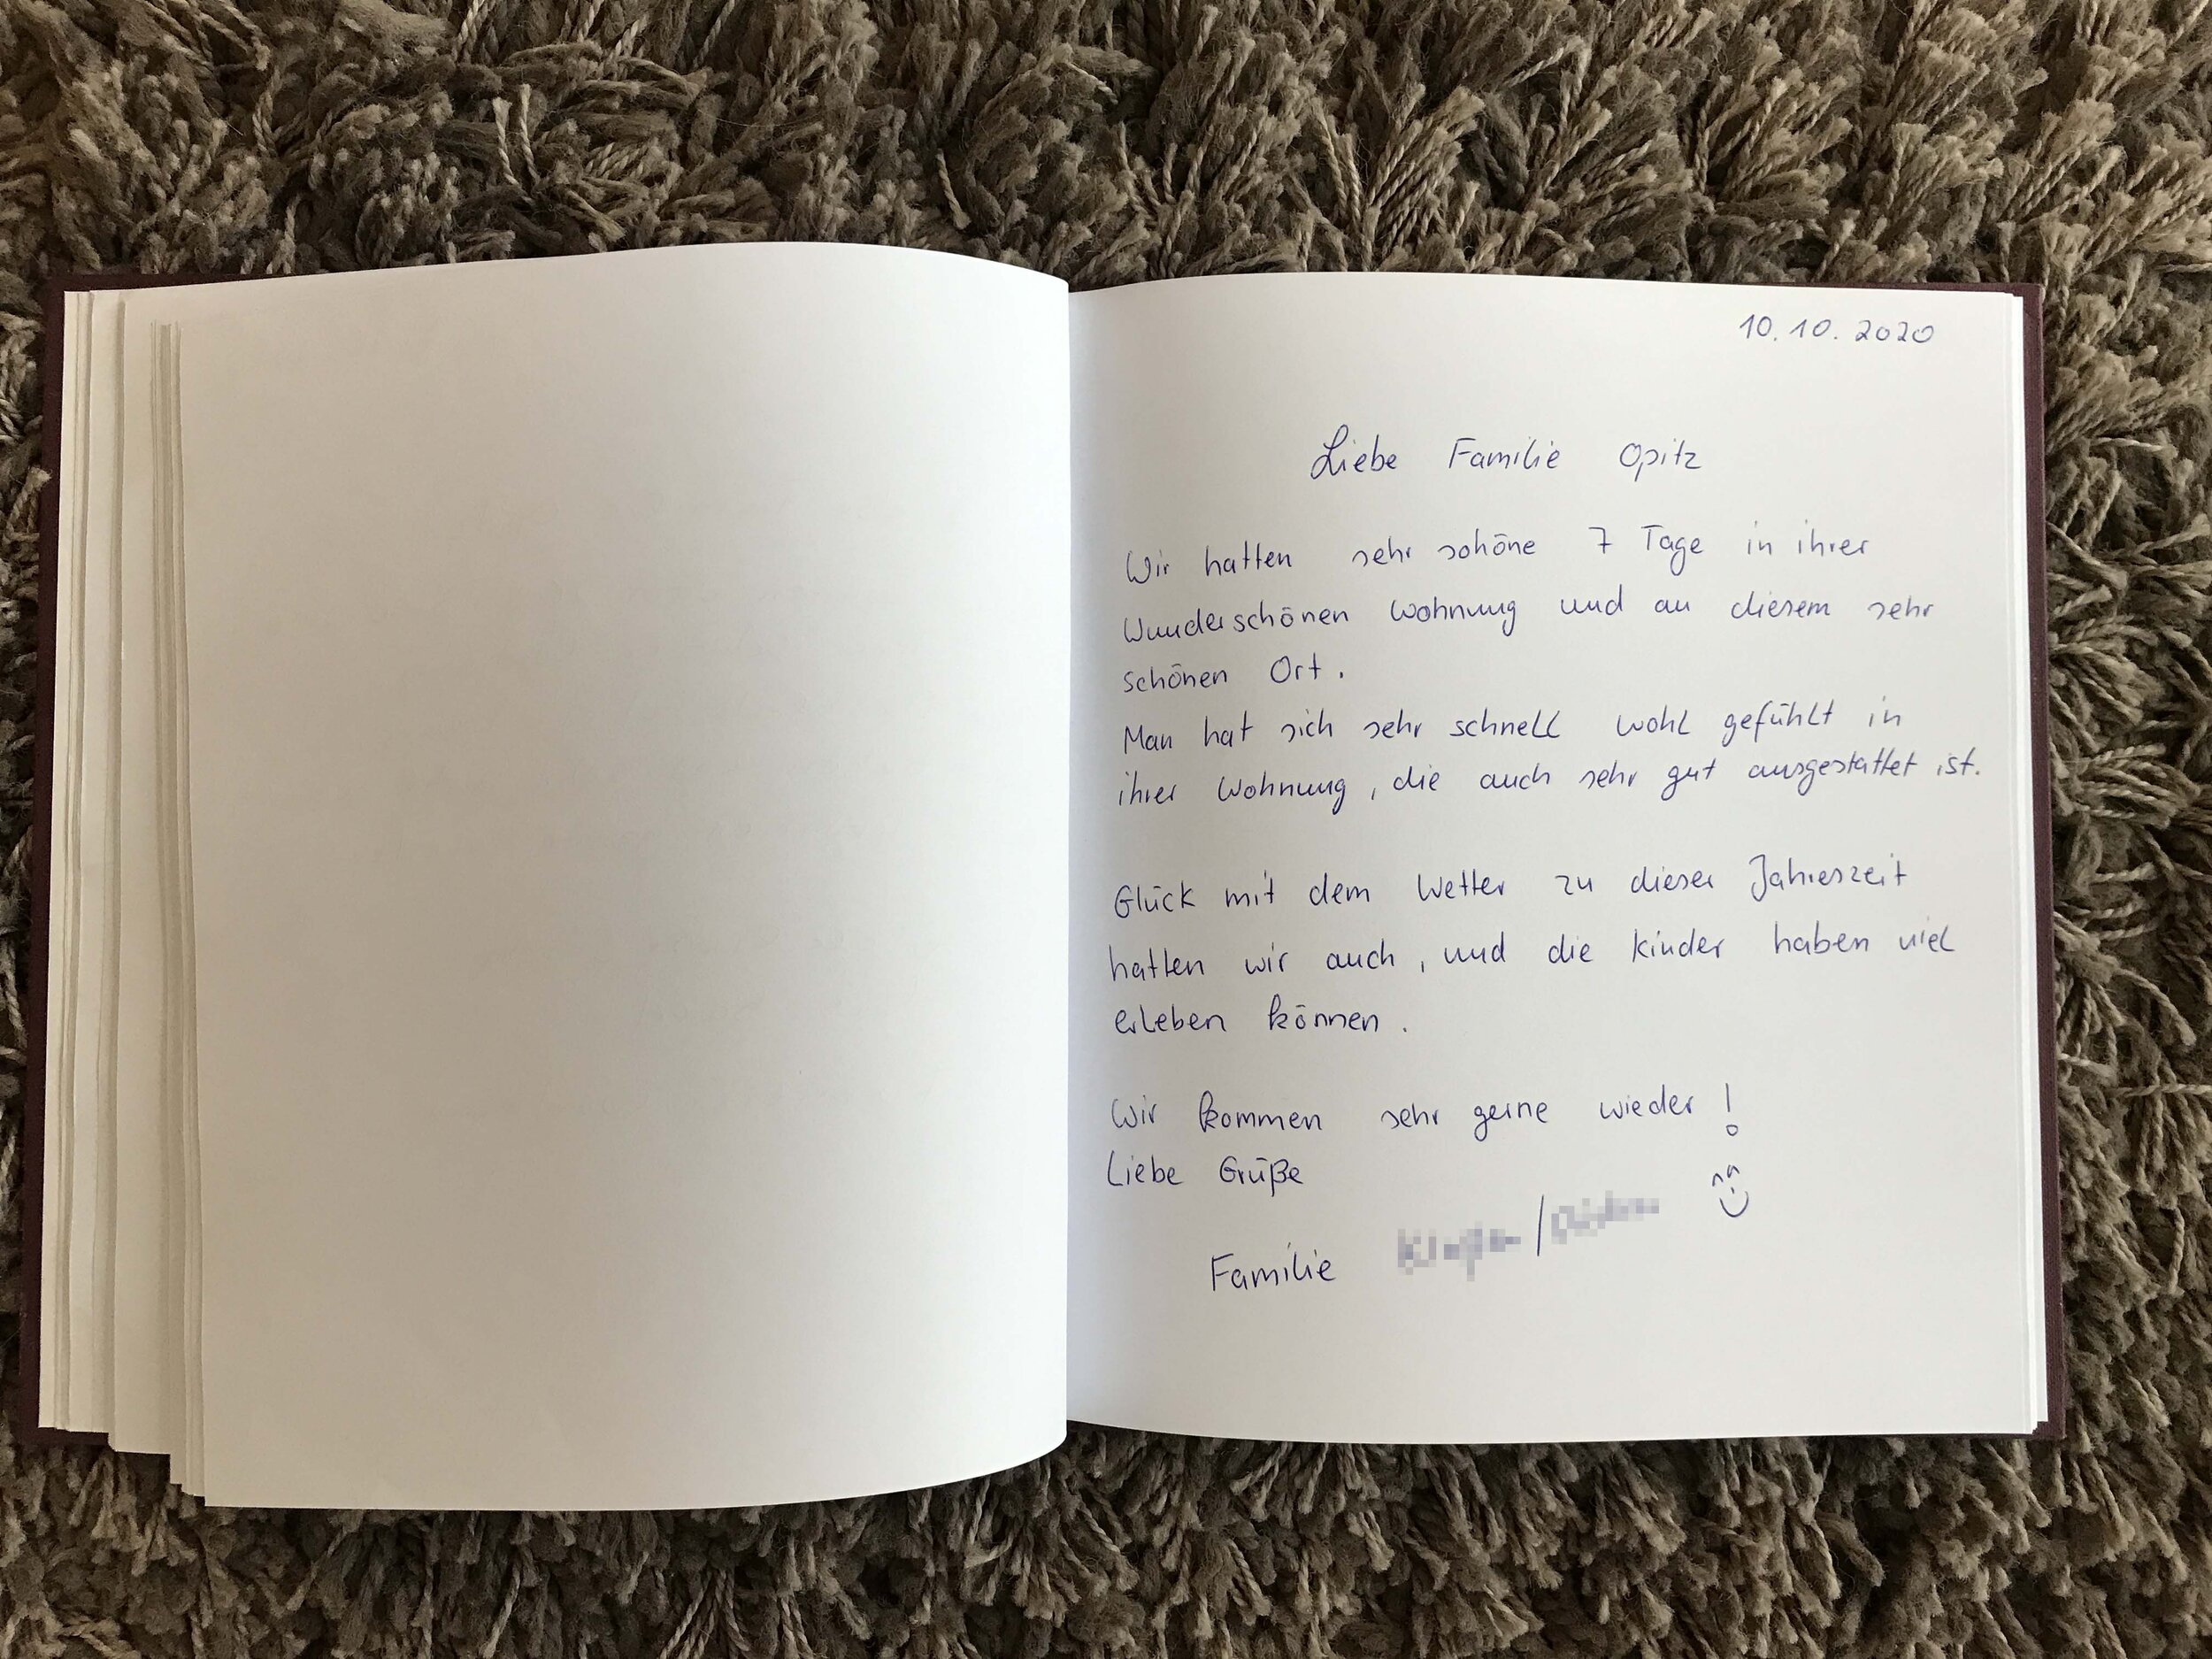 10.10.2020
Liebe Familie Opitz
Wir hatten sehr schöne 7 Tage in ihrer
Wunderschönen Wohnung und an diesem sehr
schönen Ort.
Man hat sich sehr schnell wohl gefühlt in
ihrer Wohnung, die auch sehr gut ausgestattet ist.
Glück mit dem Wetter zu dieser Jahreszeit
hatten wir auch, und die Kinder haben viel
erleben können.
Wir kommen sehr gerne wieder!
Liebe Grüße
Familie /